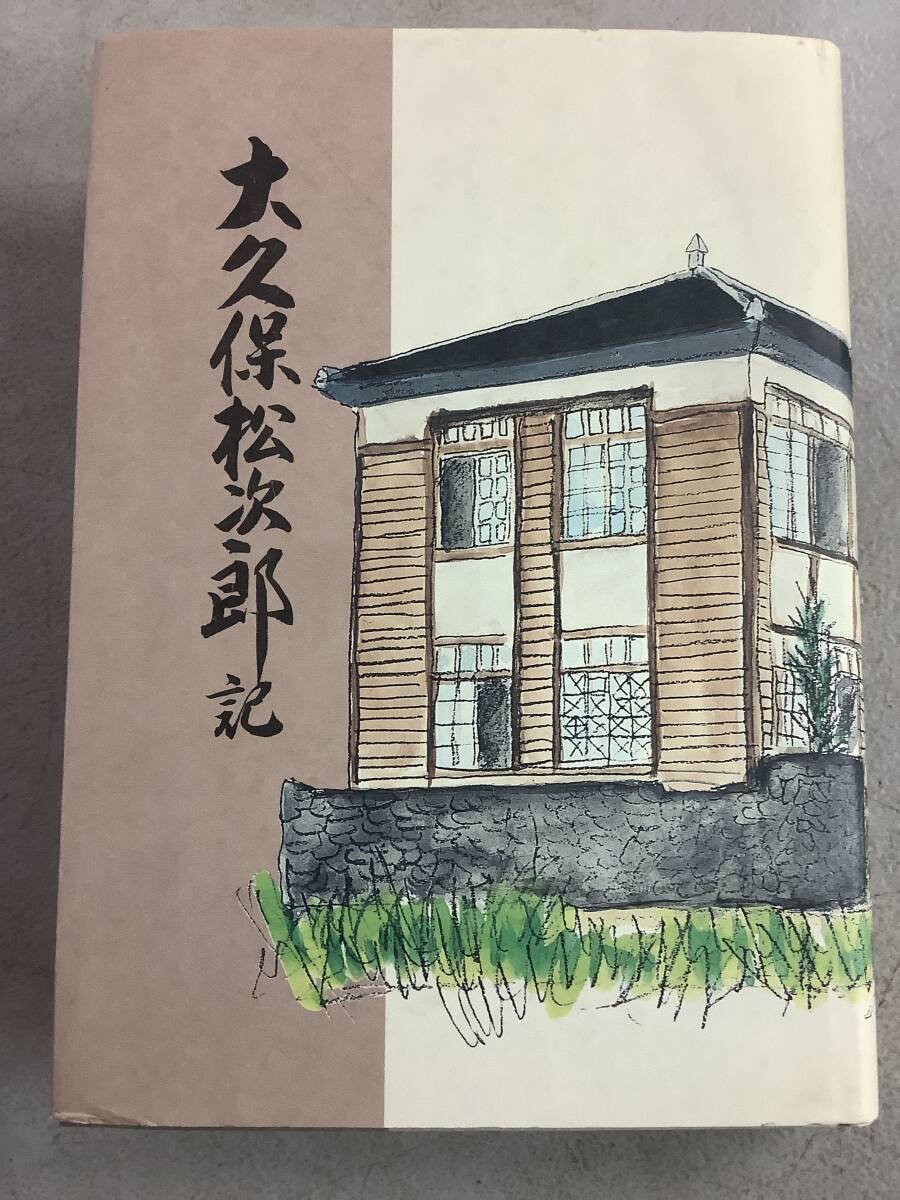 大久保松次郎記